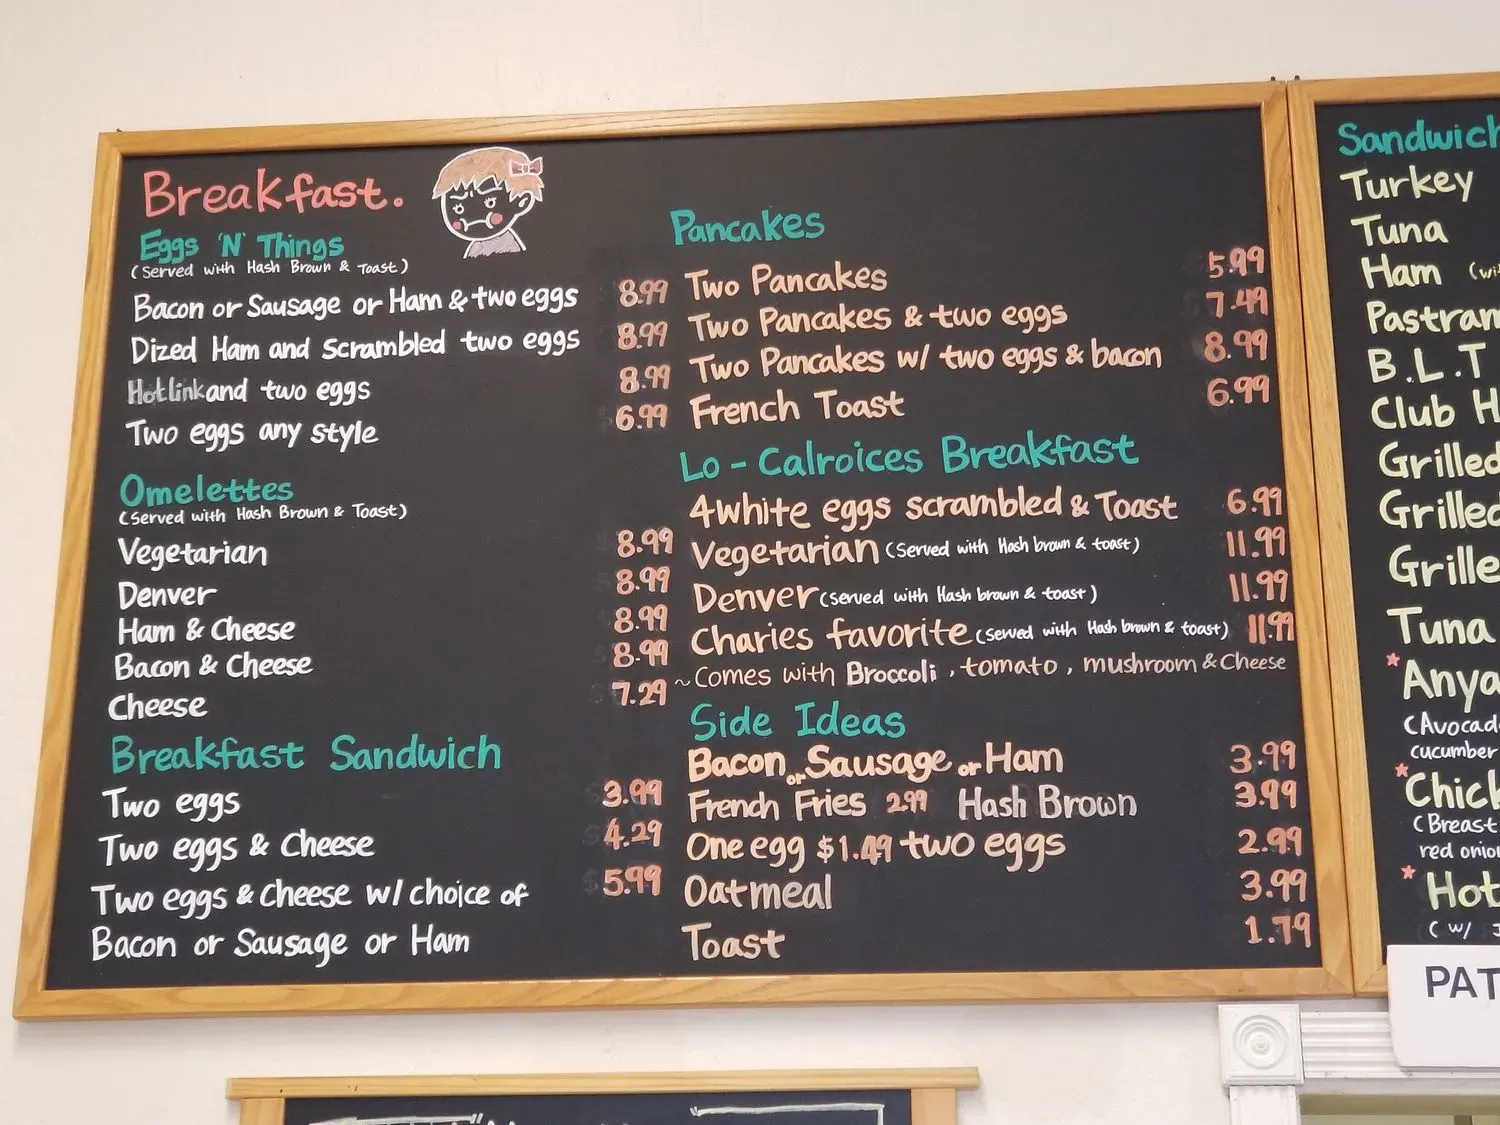 Breakfast.
Eggs 'N' Things
(Served with Hash Brown & Toast)
Bacon or Sausage or Ham & two eggs 8.99
Dized Ham and scrambled two eggs 8.99
Hotlink and two eggs 8.99
Two eggs any style 6.99
Omelettes
(Served with Hash Brown & Toast)
Vegetarian 8.99
Denver 8.99
Ham & Cheese 8.99
Bacon & Cheese 8.99
Cheese 7.29
Breakfast Sandwich
Two eggs 3.99
Two eggs & Cheese 4.29
Two eggs & Cheese w/ choice of 5.99
Bacon or Sausage or Ham
Pancakes
Two Pancakes 5.99
Two Pancakes & two eggs 7.49
Two Pancakes w/ two eggs & bacon 8.99
French Toast 6.99
Lo - Calroices Breakfast
4 white eggs scrambled & Toast 6.99
Vegetarian (Served with Hash brown & toast) 11.99
Denver (Served with Hash brown & toast) 11.99
Charies favorite (Served with Hash brown & toast) 11.99
~ Comes with Broccoli, tomato, mushroom & Cheese
Side Ideas
Bacon or Sausage or Ham 3.99
French Fries 2.99 Hash Brown 3.99
One egg $1.49 two eggs 2.99
Oatmeal 3.99
Toast 1.79
Sandwich
Turkey
Tuna
Ham (wi
Pastram
B.L.T
Club H
Grilled
Grilled
Grille
Tuna
* Anya
(Avocad
cucumber
* Chick
(Breast
red onio
* Hot
( w/ J
PAT